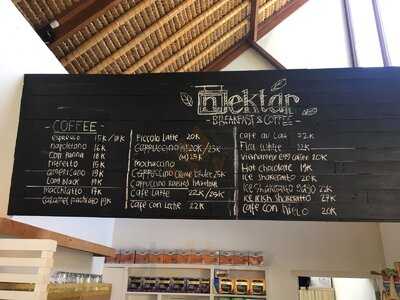 nektar
- BREAKFAST & COFFEE -
- COFFEE -
Espresso 15K/18K
napoletano 16K
Cop Panna 18K
ristretto 15K
americano 19K
Long Black 19K
Macchiatto 17K
Caramel 19K
Piccolo Latte 20K
Cappuccino 20K/23K
(M) 25K
Mochaccino
Cappuccino 25K
Cappuccino
Cafe Latte 22K/25K
Cafe con Latte 22K
Cafe au Lait 22K
Flat White 22K
Vietnamese Egg Coffee 20K
Hot chocolate 19K
Ice Shakerato 20K
Ice Shakerato 22K
Ice Irish Shakerato 27K
Cafe con